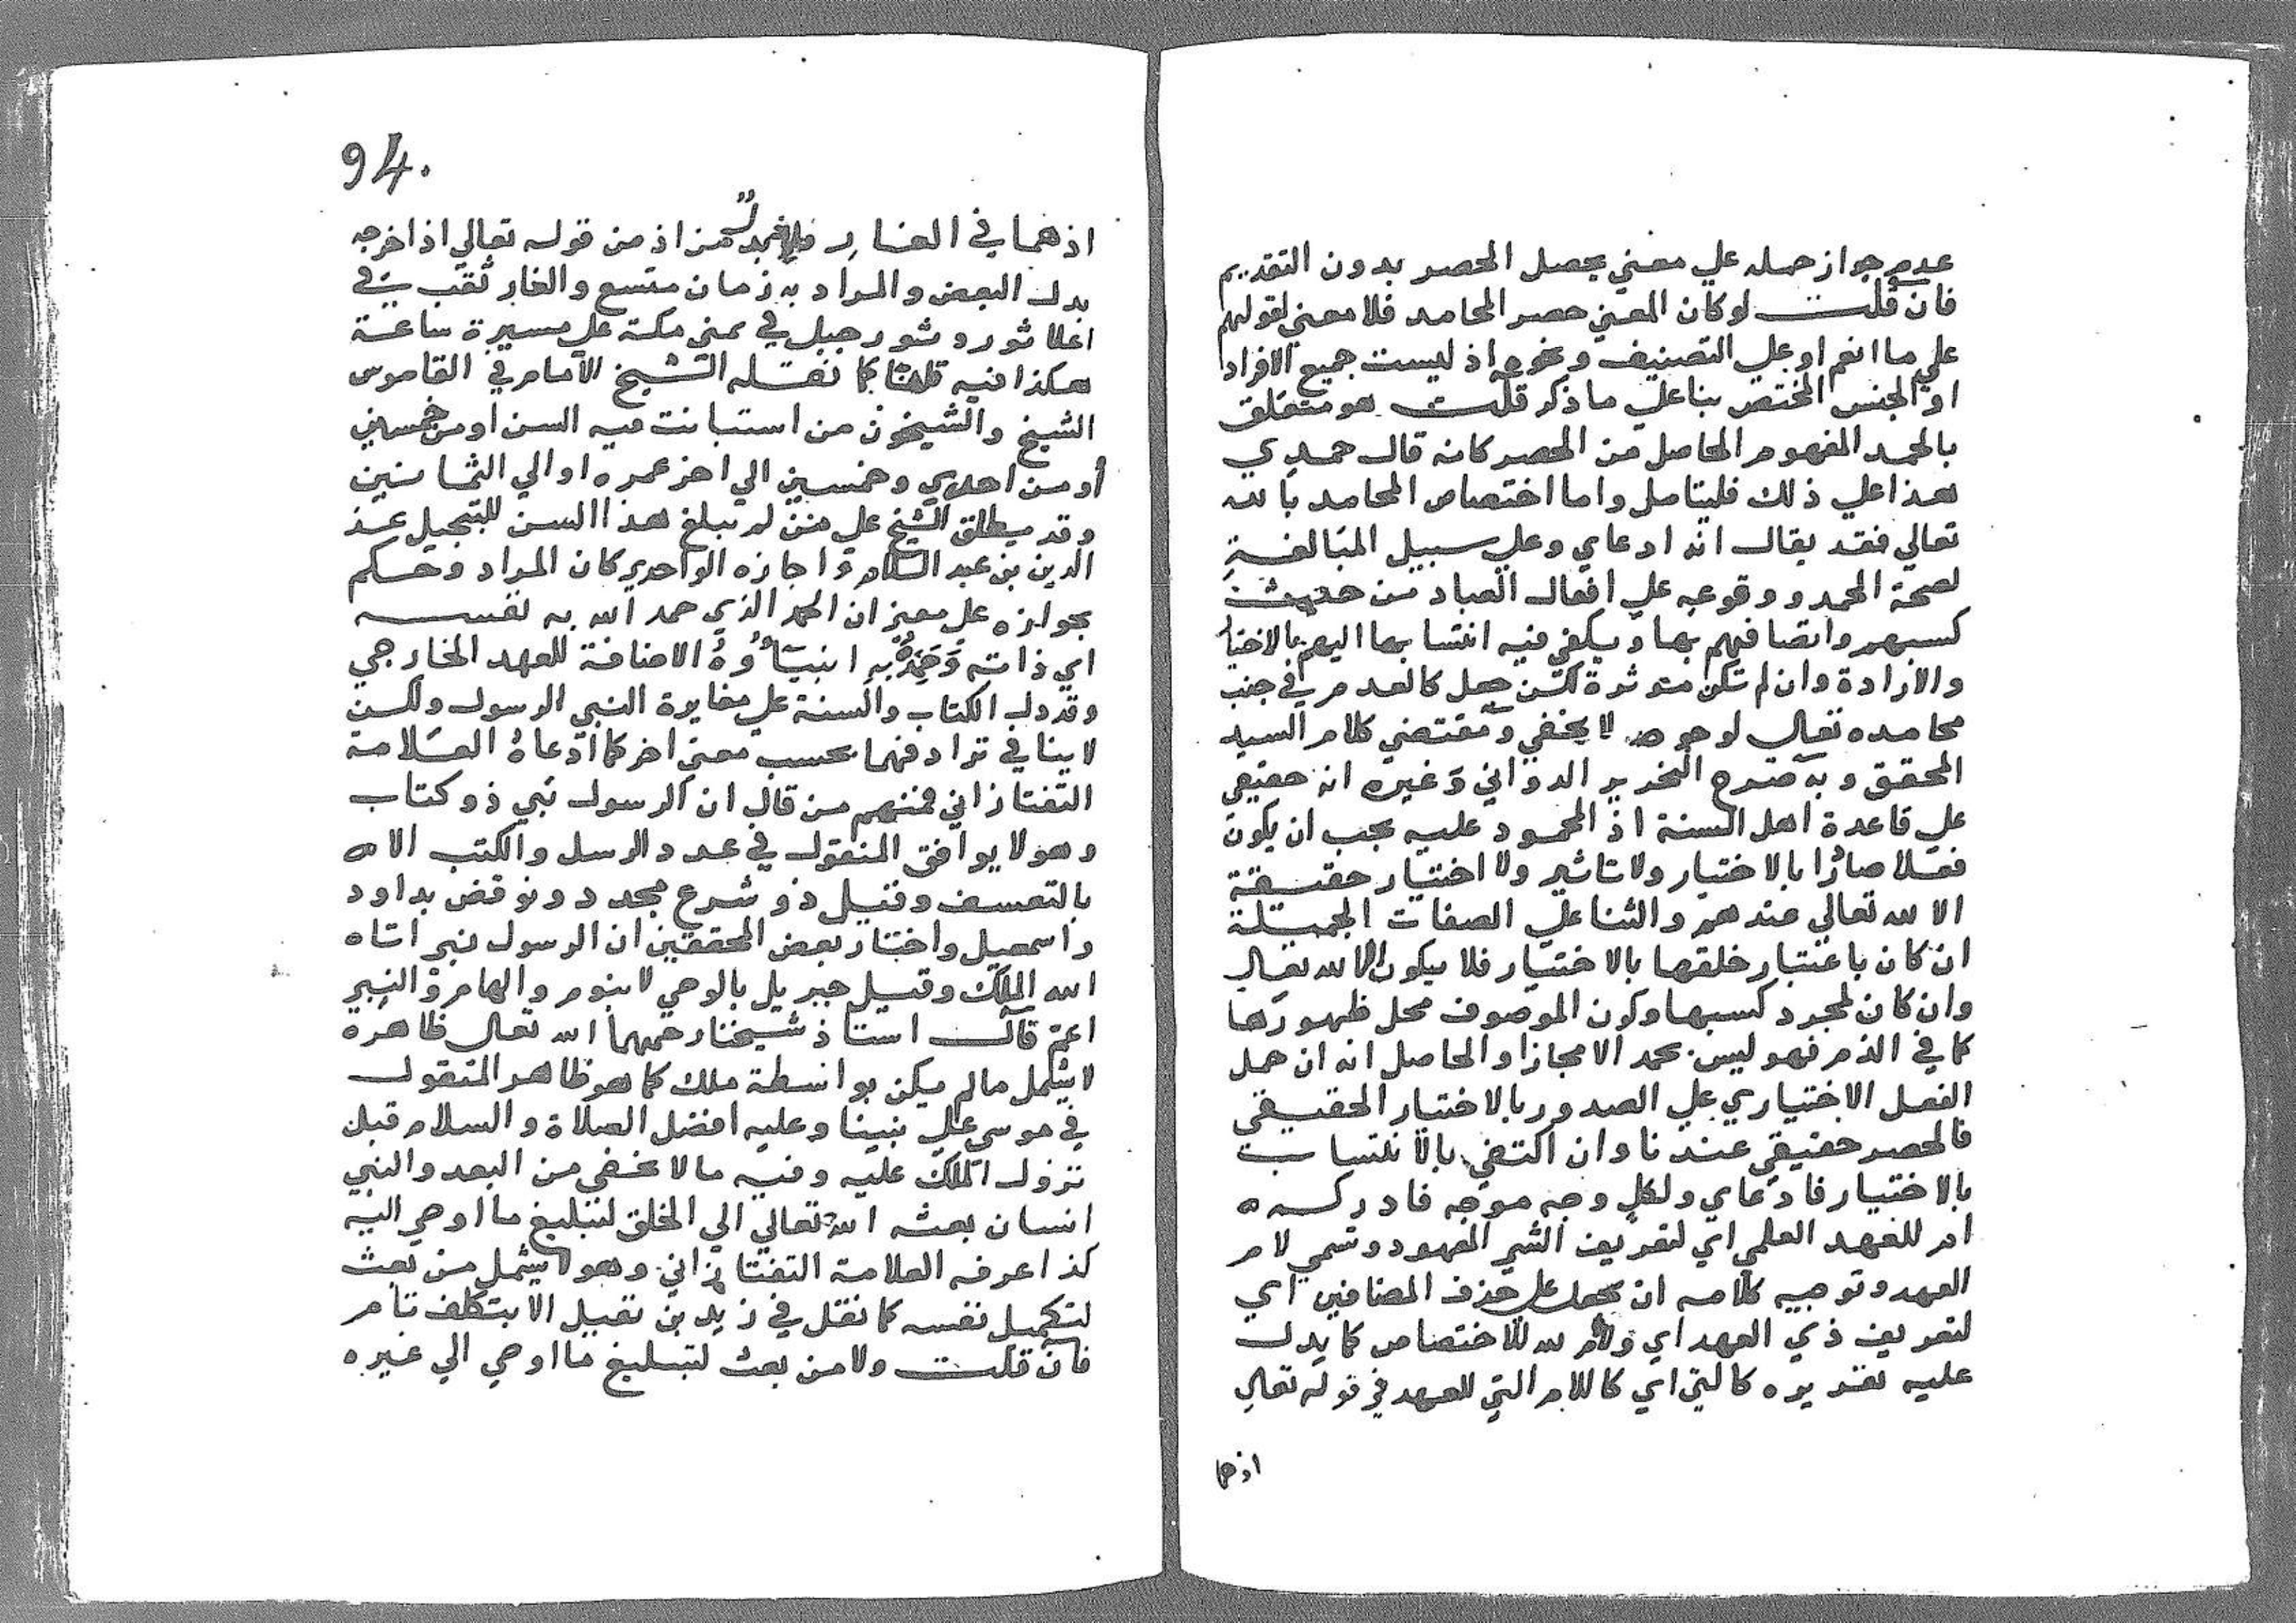 عدم جواز حمله علي معني يحصل الحصر بدون التقديم
فان قلت لو كان المعني حصر المحامد فلا معني لقولهم
علي ما انعم او علي التصنيف ونحوه اذ ليست جميع الافراد
او الجنس المختص بنا علي ما ذكر قلت هو متعلق
بالحمد المفهوم الحاصل من الحصر كانه قال حمدي
هذا علي ذلك فليتامل واما اختصاص المحامد بالله
تعالي فقد يقال انه ادعاي وعلي سبيل المبالغة
لصحة الحمد ووقوعه علي افعال العباد من حيث
كسبهم واتصافهم بها ويكفي فيه انتسابها اليهم بالاختيا
والارادة وان لم تكن موثرة لكن جعل كالعدم في جنب
محامده تعالي لوجوه لا يخفي ومقتضي كلام السيد
المحقق وبه صرح النحرير الدواني وغيره انه حقيقي
علي قاعدة اهل السنة اذ المحمود عليه يجب ان يكون
فعلا صادرا بالاختيار ولا تاثير ولا اختيار حقيقة
الا لله تعالي عندهم والثنا علي الصفات الجميلة
ان كان باعتبار خلقها بالاختيار فلا يكون الا لله تعالي
وان كان لمجرد كسبها وكون الموصوف محل ظهورها
كما في الذم فهو ليس بحمد الا مجازا والحاصل انه ان حمل
الفعل الاختياري علي الصدور بالاختيار الحقيقي
فالحصر حقيقي عندنا وان اكتفي بالانتساب
بالاختيار فادعاي ولكل وجه موجه فادركه
ام للعهد العلمي اي لتعريف الشي المعهود وتسمي لام
العهد وتوجيه كلامه ان يحمل علي حذف المضافين اي
لتعريف ذي العهد اي ولام لله للاختصاص كما يدل
عليه تقديره كالتي اي كاللام التي للعهد في قوله تعالي
اذ هما
94.
اذ هما في الغار من اذ من قوله تعالي اذ اخرجه
بدل البعض والمراد به زمان متسع والغار ثقب في
اعلا ثور وثور جبل في يمني مكة علي مسيرة ساعة
هكذا فيه كما نقله الشيخ الامام في القاموس
الشيخ والشيخون من استبانت فيه السن او من خمسين
او من احدي وخمسين الي اخر عمره او الي الثمانين
وقد يطلق الشيخ علي من لم يبلغ هذا السن للتبجيل عز
الدين بن عبد السلام واجازه الواحدي كان المراد وحكم
بجوازه علي معني ان الحمد الذي حمد الله به نفسه
اي ذاته وحمده به انبياؤه الاضافة للعهد الخارجي
وقد دل الكتاب والسنة علي مغايرة النبي الرسول ولكن
لا ينافي ترادفهما بحسب معني اخر كما ادعاه العلامة
التفتازاني فمنهم من قال ان الرسول نبي ذو كتاب
وهو لا يوافق المنقول في عدد الرسل والكتب الا
بالتعسف وقيل ذو شرع مجدد ونوقض بداود
واسمعيل واختار بعض المحققين ان الرسول نبي اتاه
الله الملك وقيل جبريل بالوحي لا بنوم والهام والنبي
اعم قال استاذ شيخنا رحمهما الله تعالي ظاهره
لا يشمل مالم يكن بواسطة ملك كما هو ظاهر المنقول
في موسي علي نبينا وعليه افضل الصلاة والسلام قبل
نزول الملك عليه وفيه ما لا يخفي من البعد والنبي
انسان بعثه الله تعالي الي الخلق لتبليغ ما اوحي اليه
كذا عرفه العلامة التفتازاني وهو لا يشمل من بعث
لتكميل نفسه كما نقل في زيد بن نفيل الا بتكلف تام
فان قلت ولا من بعث لتبليغ ما اوحي الي غيره